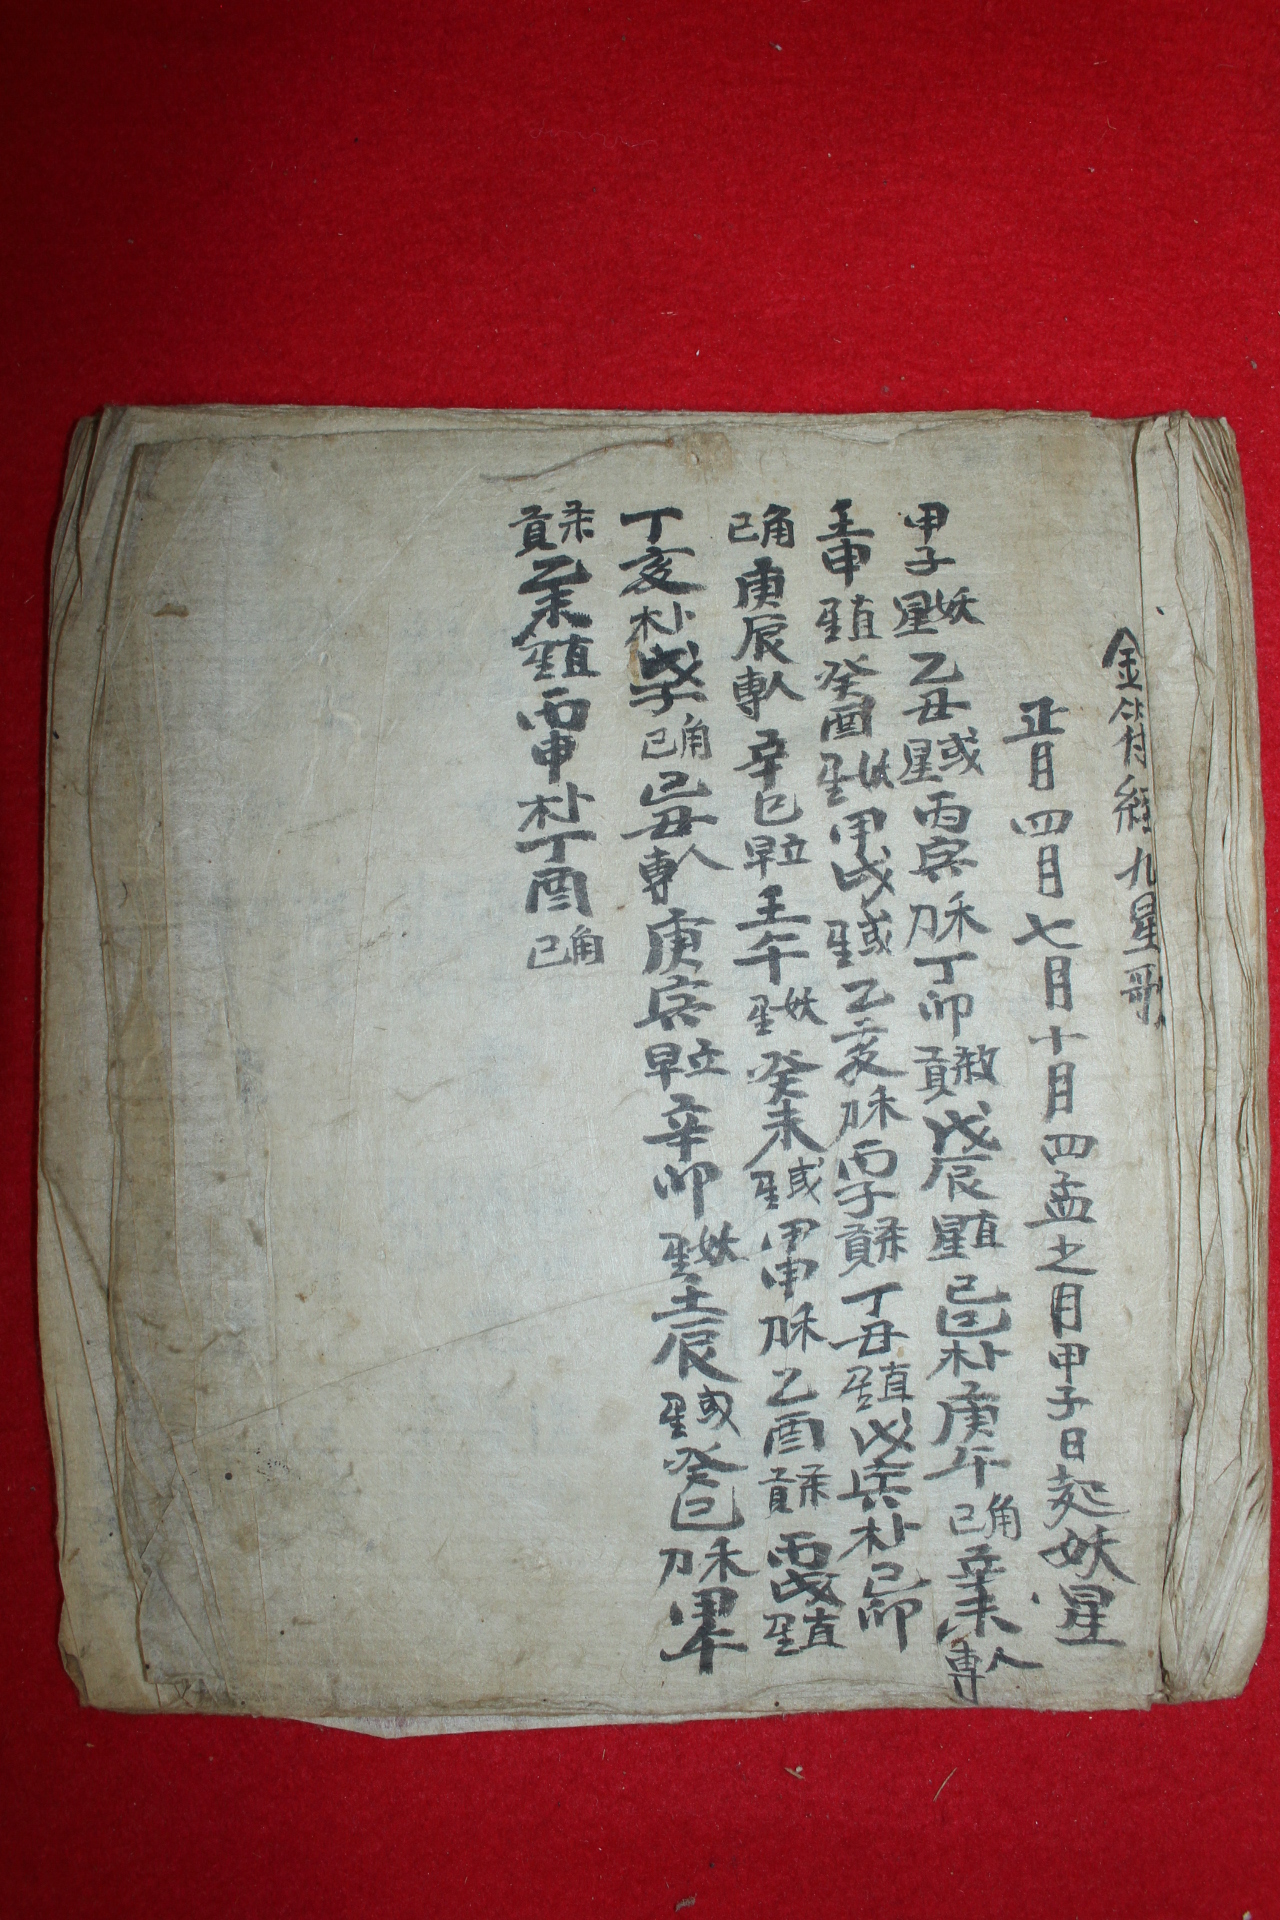 金符経九星歌
正月四月七月十月四孟之月甲子日起妖星
甲子妖星乙丑或星丙寅禾刀丁卯貢戊辰直星己巳朴庚午角己辛未人專
壬申直星癸酉妖星甲戌或星乙亥禾刀丙子貢丁丑直星戊寅朴己卯
角己庚辰人專辛巳立早壬午妖星癸未或星甲申禾刀乙酉貢丙戌直星
丁亥朴戊子角己己丑人專庚寅立早辛卯妖星壬辰或星癸巳禾刀甲午
貢乙未直星丙申朴丁酉角己